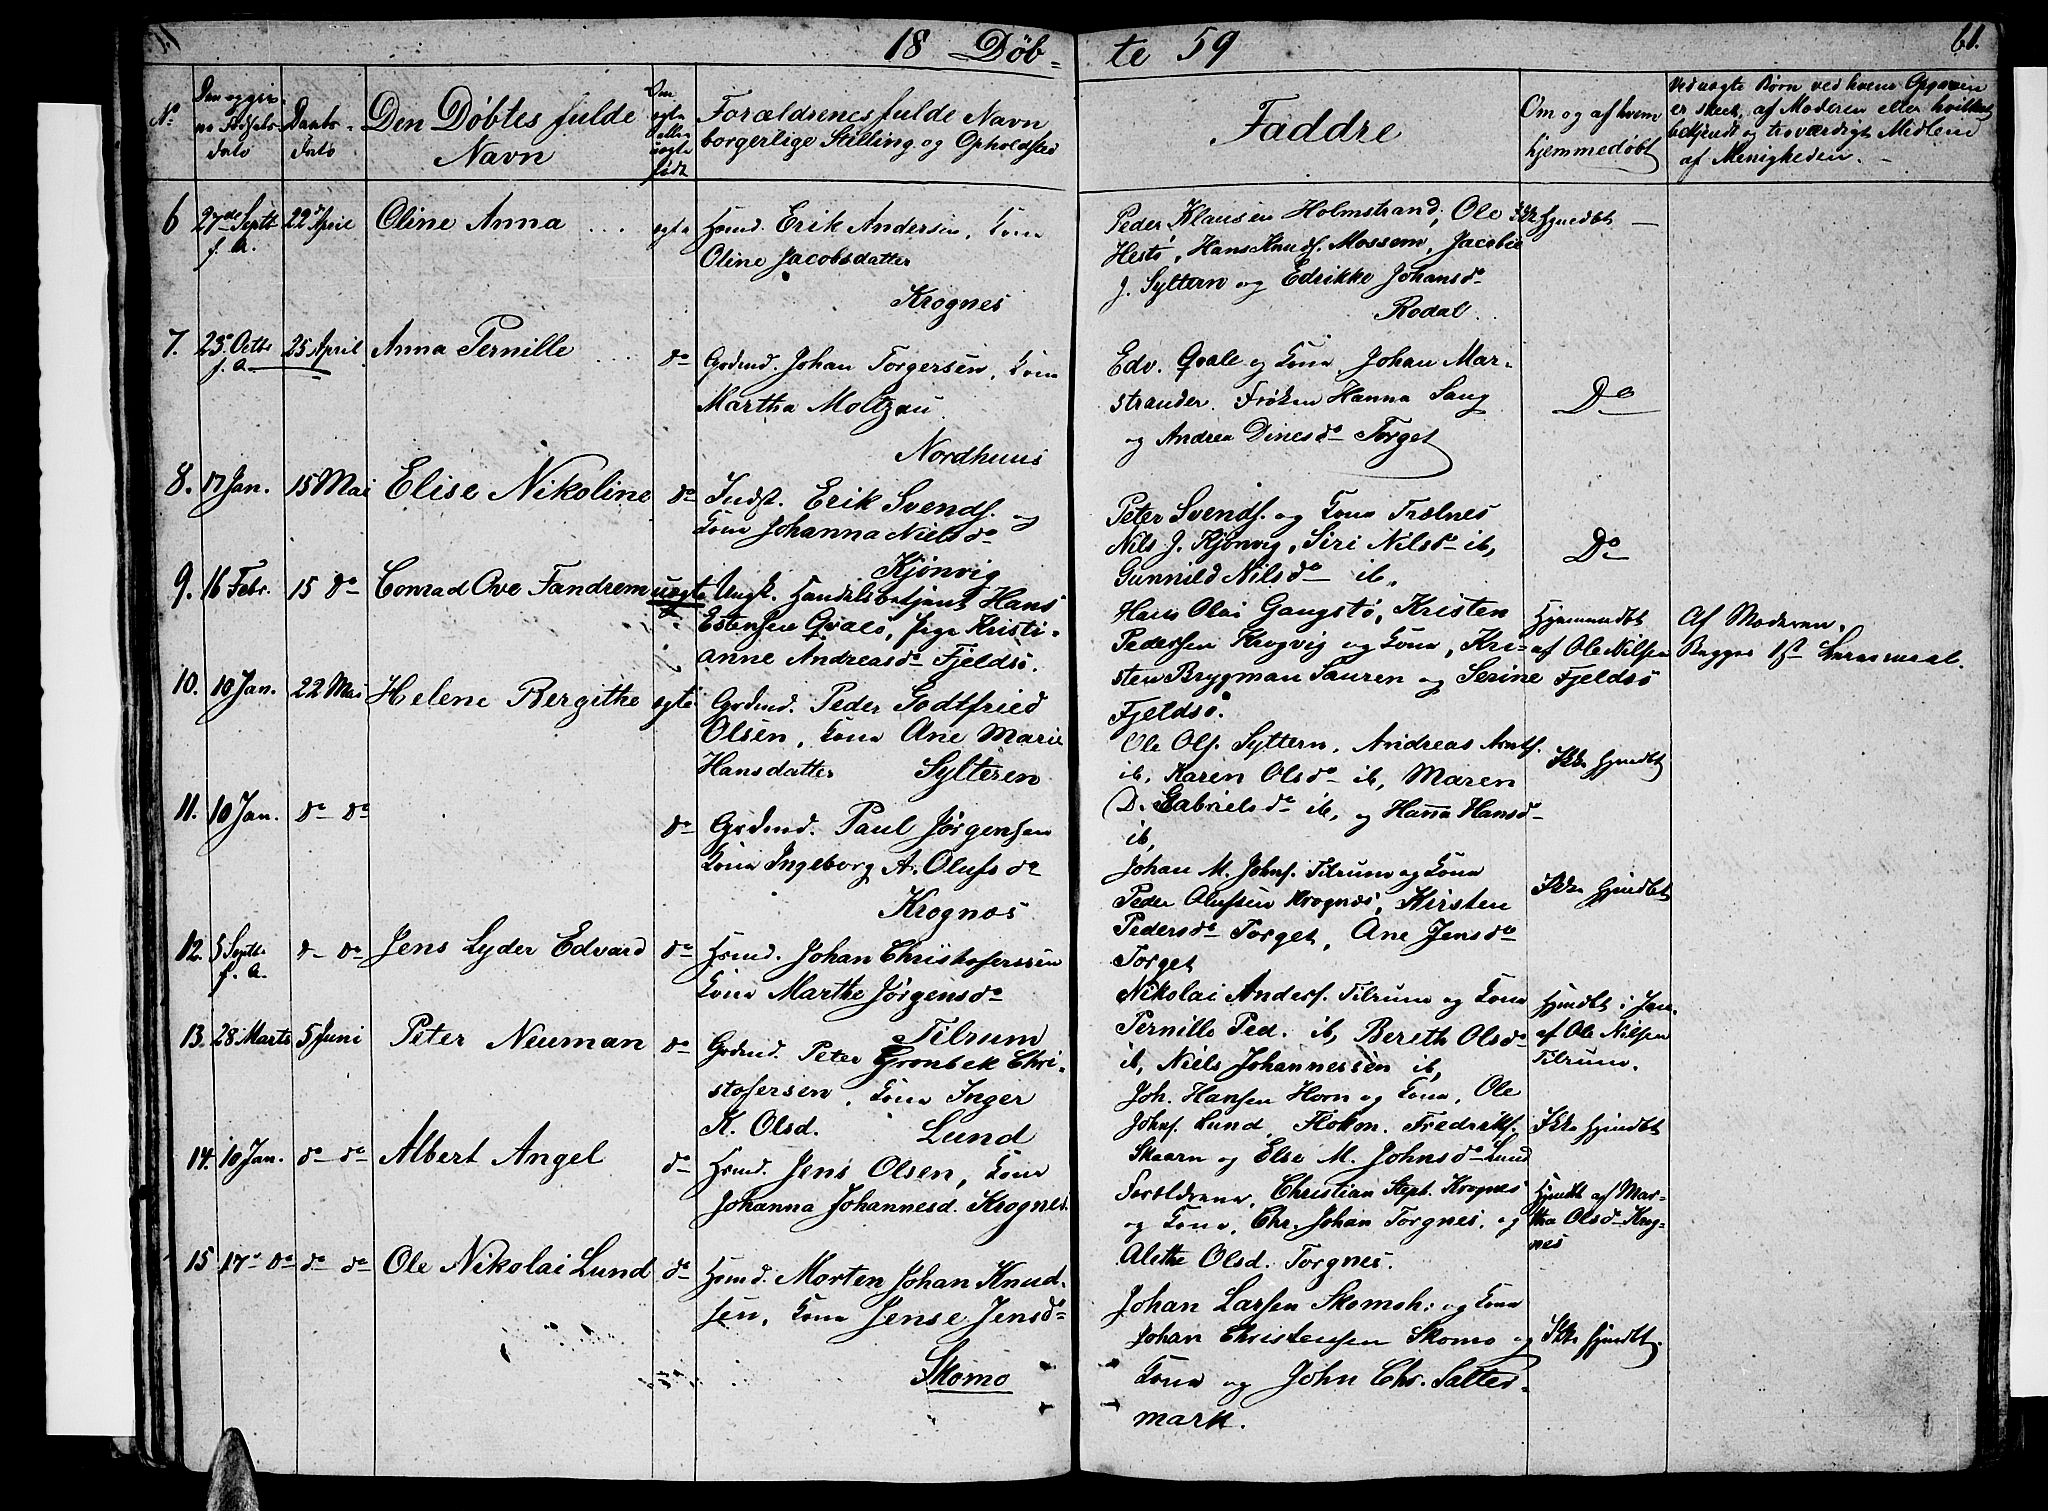 18 Døb-
te 59
61.
No
Den Døbtes fulde
Navn
Daabs-
dato
Om
egte
eller
uegte
født
Forældrenes fulde Navn
borgerlige Stilling og Opholdsted
Faddre
Om og af hvem
hjemmedøbt
Ved uegte Børn ved hvem Opgaven
er skeet, af Moderen eller hvilket
bekjendt og troværdigt Medlem
af Menigheden.
6 27de Septb 22d April Oline Anna egte
f. A.
Hsmd. Erik Andersen, Kone
Oline Jacobsdatter
Krognes
Peder Klausen Holmstrand, Ole
Hestø, Hans Knuds. Mossem, Jacobie
J. Syltern og Edrikke Johansdr
Rodal.
Ikke Hjmdbt
7. 23 Octb 25 April Anna Pernille do
f. A.
Grdmd. Johan Torgersen, Kone
Martha Moltzau.
Nordhuus
Edv. Qvale og Kone, Johan Mar-
strander. Frøken Hanna Sang
og Andrea Dinesdr Torget
Do
8. 17 Jan. 15 Mai Elise Nikoline do
Indst. Erik Svends. og
Kone Johanna Nielsdr
Kjönvig
Peter Svends. og Kone Trælnes
Nils J. Kjönvig, Siri Nilsdr ib,
Gunnild Nilsdr ib.
Do
9. 16 Febr. 15 do Conrad Ove Fandrem uegte
Ungk. Handelsbetjent Hans
Estensen Qvalö, Pige Kristi-
anne Andreasdr Fjeldsö.
Hans Olai Gangstø, Kristen
Pedersen Krogvig og Kone, Kri-
sten Brygman Sauren og Serine
Fjeldsö.
Hjemmedbt
af Ole Nilsen
Fjeldsö
Af Moderen.
Begges 1st Leiermaal.
10. 10 Jan. 22 Mai Helene Bergithe egte
Grdmd. Peder Godtfried
Olsen, Kone Ane Marie
Hansdatter Sylteren
Ole Ols. Syltern, Andreas Arnts.
ib, Karen Olsdr ib, Maren
D. Gabrielsdr ib, og Hanna Hansdr
ib,
Ikke hjmdbt
11. 10 Jan. do do do
Grdmd. Paul Jørgensen
Kone Ingeborg A. Olufsdr
Krognes
Johan M. Johns. Tilrum og Kone
Peder Olufsen Krognes, Kirsten
Pedersdr Torget, Ane Jensdr
Torget
Ikke hjmdbt
12. 5 Septb. do do Jens Lyder Edvard do
f. A.
Hsmd. Johan Christofersen
Kone Marthe Jørgensdr
Tilrum
Nikolai Anders. Tilrum og Kone
Pernille Ped. ib, Bereth Olsdr
ib, Niels Johannessen ib,
Hjmdbt i Jan.
af Ole Nilsen
Tilrum.
13. 28 Marts 5 Juni Peter Neuman do
Grdmd. Peter Grønbek Chri-
stofersen, Kone Inger
K. Olsd. Lund
Joh. Hansen Horn og Kone, Ole
Johns. Lund, Fredriks.
Skaarn og Else M. Johnsdr Lund
Ikke hjmdbt
14. 10 Jan. do do Albert Angel do
Hsmd. Jens Olsen, Kone
Johanna Johannesd. Krognes.
Forældrene, Christian Steph. Krognes
og Kone, Chr. Johan Torgnes, og
Alethe Olsd. Torgnes.
Hjmdbt af Mar-
tha Olsdr Krog-
nes
15 17 do do do Ole Nikolai Lund do
Hsmd. Morten Johan Knud-
sen, Kone Jense Jensdr
Skomo
Johan Larsen Skomoh: og Kone
Johan Christensen Skomo og
Kone og John Chr. Salter-
mark.
Ikke hjmdbt.